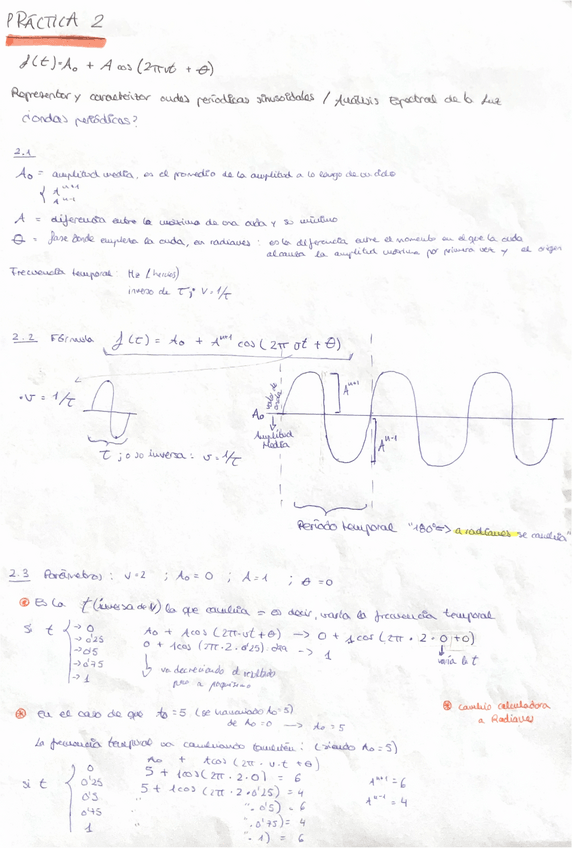 PRÁCTICA 2
f(t)=A₀ + A cos (2πνt + θ)
Representar y caracterizar ondas periódicas sinusoidales / Análisis Espectral de la Luz
¿ondas periódicas?
2.1
A₀ = amplitud media, es el promedio de la amplitud a lo largo de un ciclo
{ Aᵘ⁺¹
Aᵘ⁻¹
A = diferencia entre la máxima de una onda y su mínimo
θ = fase donde empieza la onda, en radianes: es la diferencia entre el momento en el que la onda
alcanza la amplitud máxima por primera vez y el origen
Frecuencia temporal: Hz (hercios)
inverso de τ; ν = 1/τ
2.2 Fórmula f(τ) = A₀ + Aᵘ⁺¹ cos (2π νt + θ)
·ν = 1/τ
τ ; o su inversa: ν = 1/τ
A₀
Amplitud
Media
Aᵘ⁺¹
Aᵘ⁻¹
Período temporal "180º=> a radianes se cambia"
2.3 Parámetros: ν=2 ; A₀=0 ; A=1 ; θ=0
Es la t (inversa de ν) la que cambia = es decir, varía la frecuencia temporal
Si t { → 0
→ 0'25
→ 0'5
→ 0'75
→ 1
A₀ + A cos (2π·νt + θ) → 0 + 1 cos (2π · 2 · 0 + 0)
0 + 1 cos (2π · 2 · 0'25) → 1
varía la t
va decreciendo el resultado
poco a poquísimo
En el caso de que A₀=5 (se
de A₀=0 → A₀=5
cambio calculadora
a Radianes
La frecuencia temporal va cambiando también: (siendo A₀=5)
A₀ + A cos (2π · ν · t + θ)
si t { 0
0'25
0'5
0'75
1
5 + 1cos (2π · 2 · 0) = 6
5 + 1cos (2π · 2 · 0'25) = 4
" · 0'5) = 6
" · 0'75) = 4
" · 1) = 6
Aᵘ⁺¹ = 6
Aᵘ⁻¹ = 4